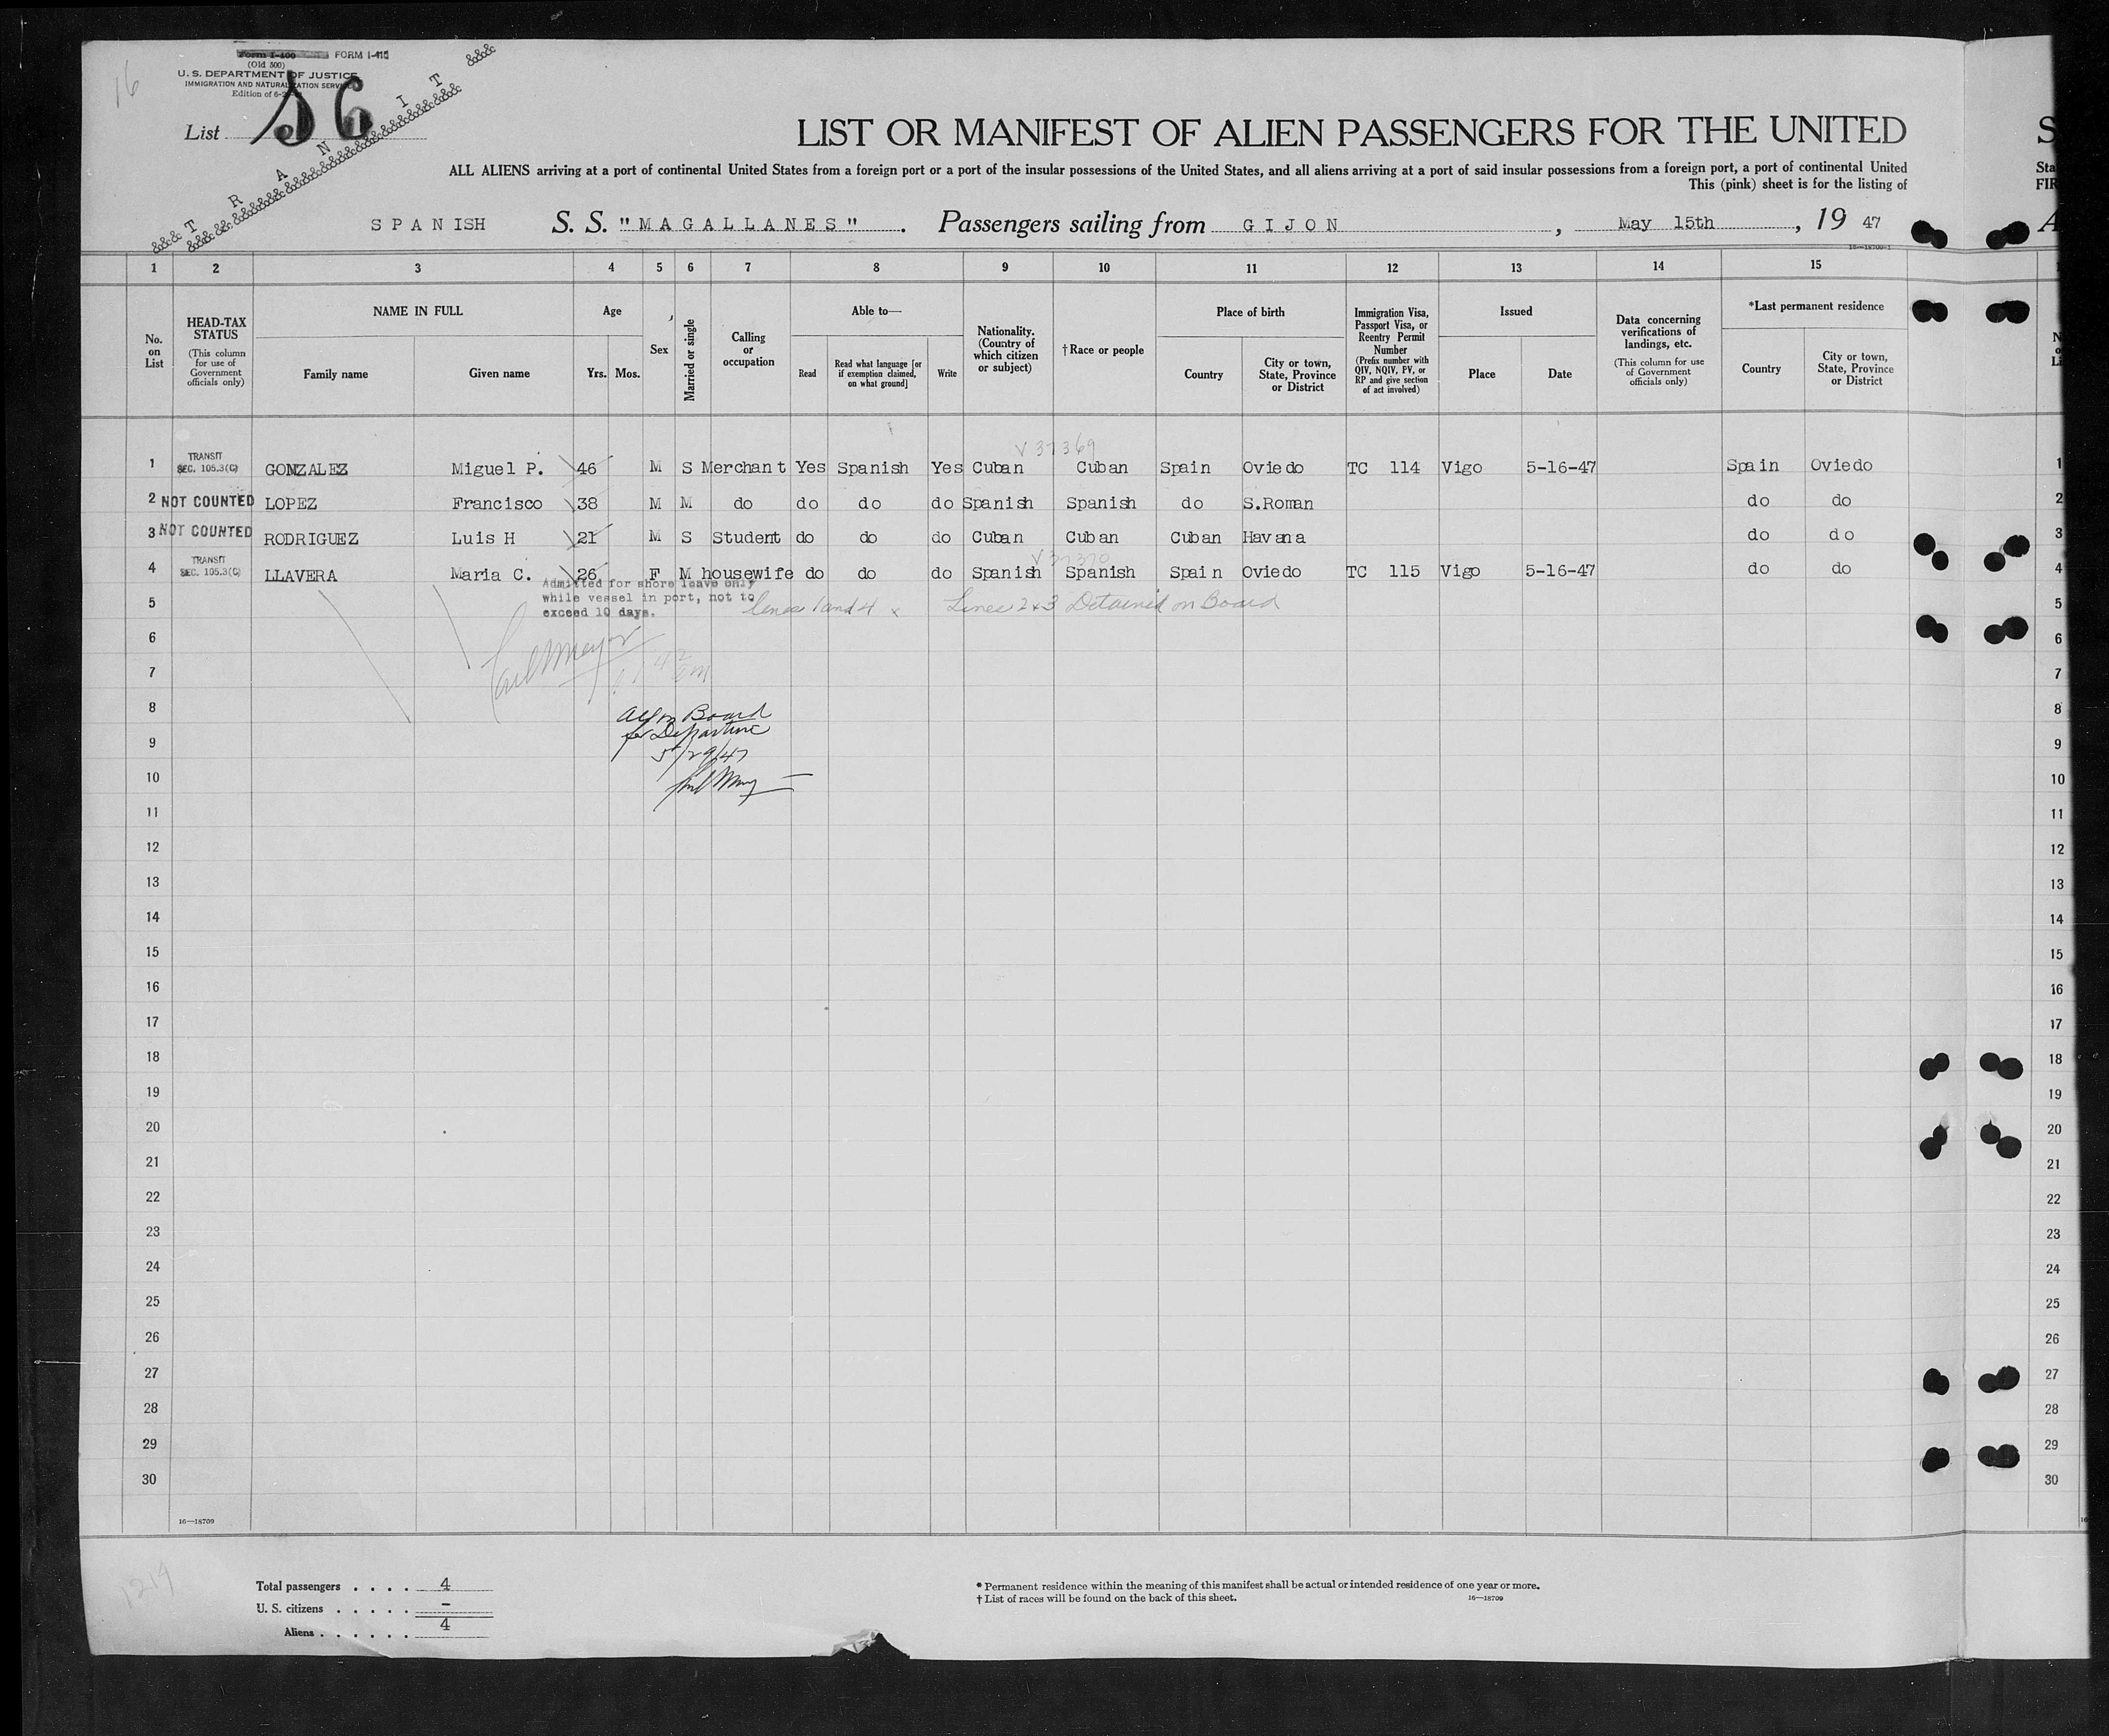 16
Form I-400 FORM I-415
(Old 500)
U. S. DEPARTMENT OF JUSTICE
IMMIGRATION AND NATURALIZATION SERVICE
Edition of
List 56
&&& T R A N S I T &&&
LIST OR MANIFEST OF ALIEN PASSENGERS FOR THE UNITED
ALL ALIENS arriving at a port of continental United States from a foreign port or a port of the insular possessions of the United States, and all aliens arriving at a port of said insular possessions from a foreign port, a port of continental United
This (pink) sheet is for the listing of
SPANISH S. S. "MAGALLANES". Passengers sailing from GIJON, May 15th, 19 47
16—18709-1
1 2 3 4 5 6 7 8 9 10 11 12 13 14 15
No. on List
HEAD-TAX STATUS (This column for use of Government officials only)
NAME IN FULL
Family name Given name
Age
Yrs. Mos.
Sex
Married or single
Calling or occupation
Able to—
Read Read what language [or if exemption claimed, on what ground] Write
Nationality. (Country of which citizen or subject)
†Race or people
Place of birth
Country City or town, State, Province or District
Immigration Visa, Passport Visa, or Reentry Permit Number (Prefix number with QIV, NQIV, PV, or RP and give section of act involved)
Issued
Place Date
Data concerning verifications of landings, etc. (This column for use of Government officials only)
*Last permanent residence
Country City or town, State, Province or District
V 37369
1 TRANSIT SEC. 105.3(C) GONZALEZ Miguel P. 46 M S Merchant Yes Spanish Yes Cuban Cuban Spain Oviedo TC 114 Vigo 5-16-47 Spain Oviedo 1
2 NOT COUNTED LOPEZ Francisco 38 M M do do do do Spanish Spanish do S.Roman do do 2
3 NOT COUNTED RODRIGUEZ Luis H 21 M S Student do do do Cuban Cuban Cuban Havana do do 3
V 37370
4 TRANSIT SEC. 105.3(C) LLAVERA Maria C. 26 F M housewife do do do Spanish Spanish Spain Oviedo TC 115 Vigo 5-16-47 do do 4
Admitted for shore leave only
while vessel in port, not to
exceed 10 days.
5 Lines 1 and 4 x Lines 2 & 3 Detained on Board 5
6 6
7 7
8 All on Board 8
for Departure
9 5/29/47 9
10 10
11 11
12 12
13 13
14 14
15 15
16 16
17 17
18 18
19 19
20 20
21 21
22 22
23 23
24 24
25 25
26 26
27 27
28 28
29 29
30 30
16—18709
1219
Total passengers . . . . 4
U. S. citizens . . . . . -
Aliens . . . . . . 4
* Permanent residence within the meaning of this manifest shall be actual or intended residence of one year or more.
† List of races will be found on the back of this sheet. 16—18709